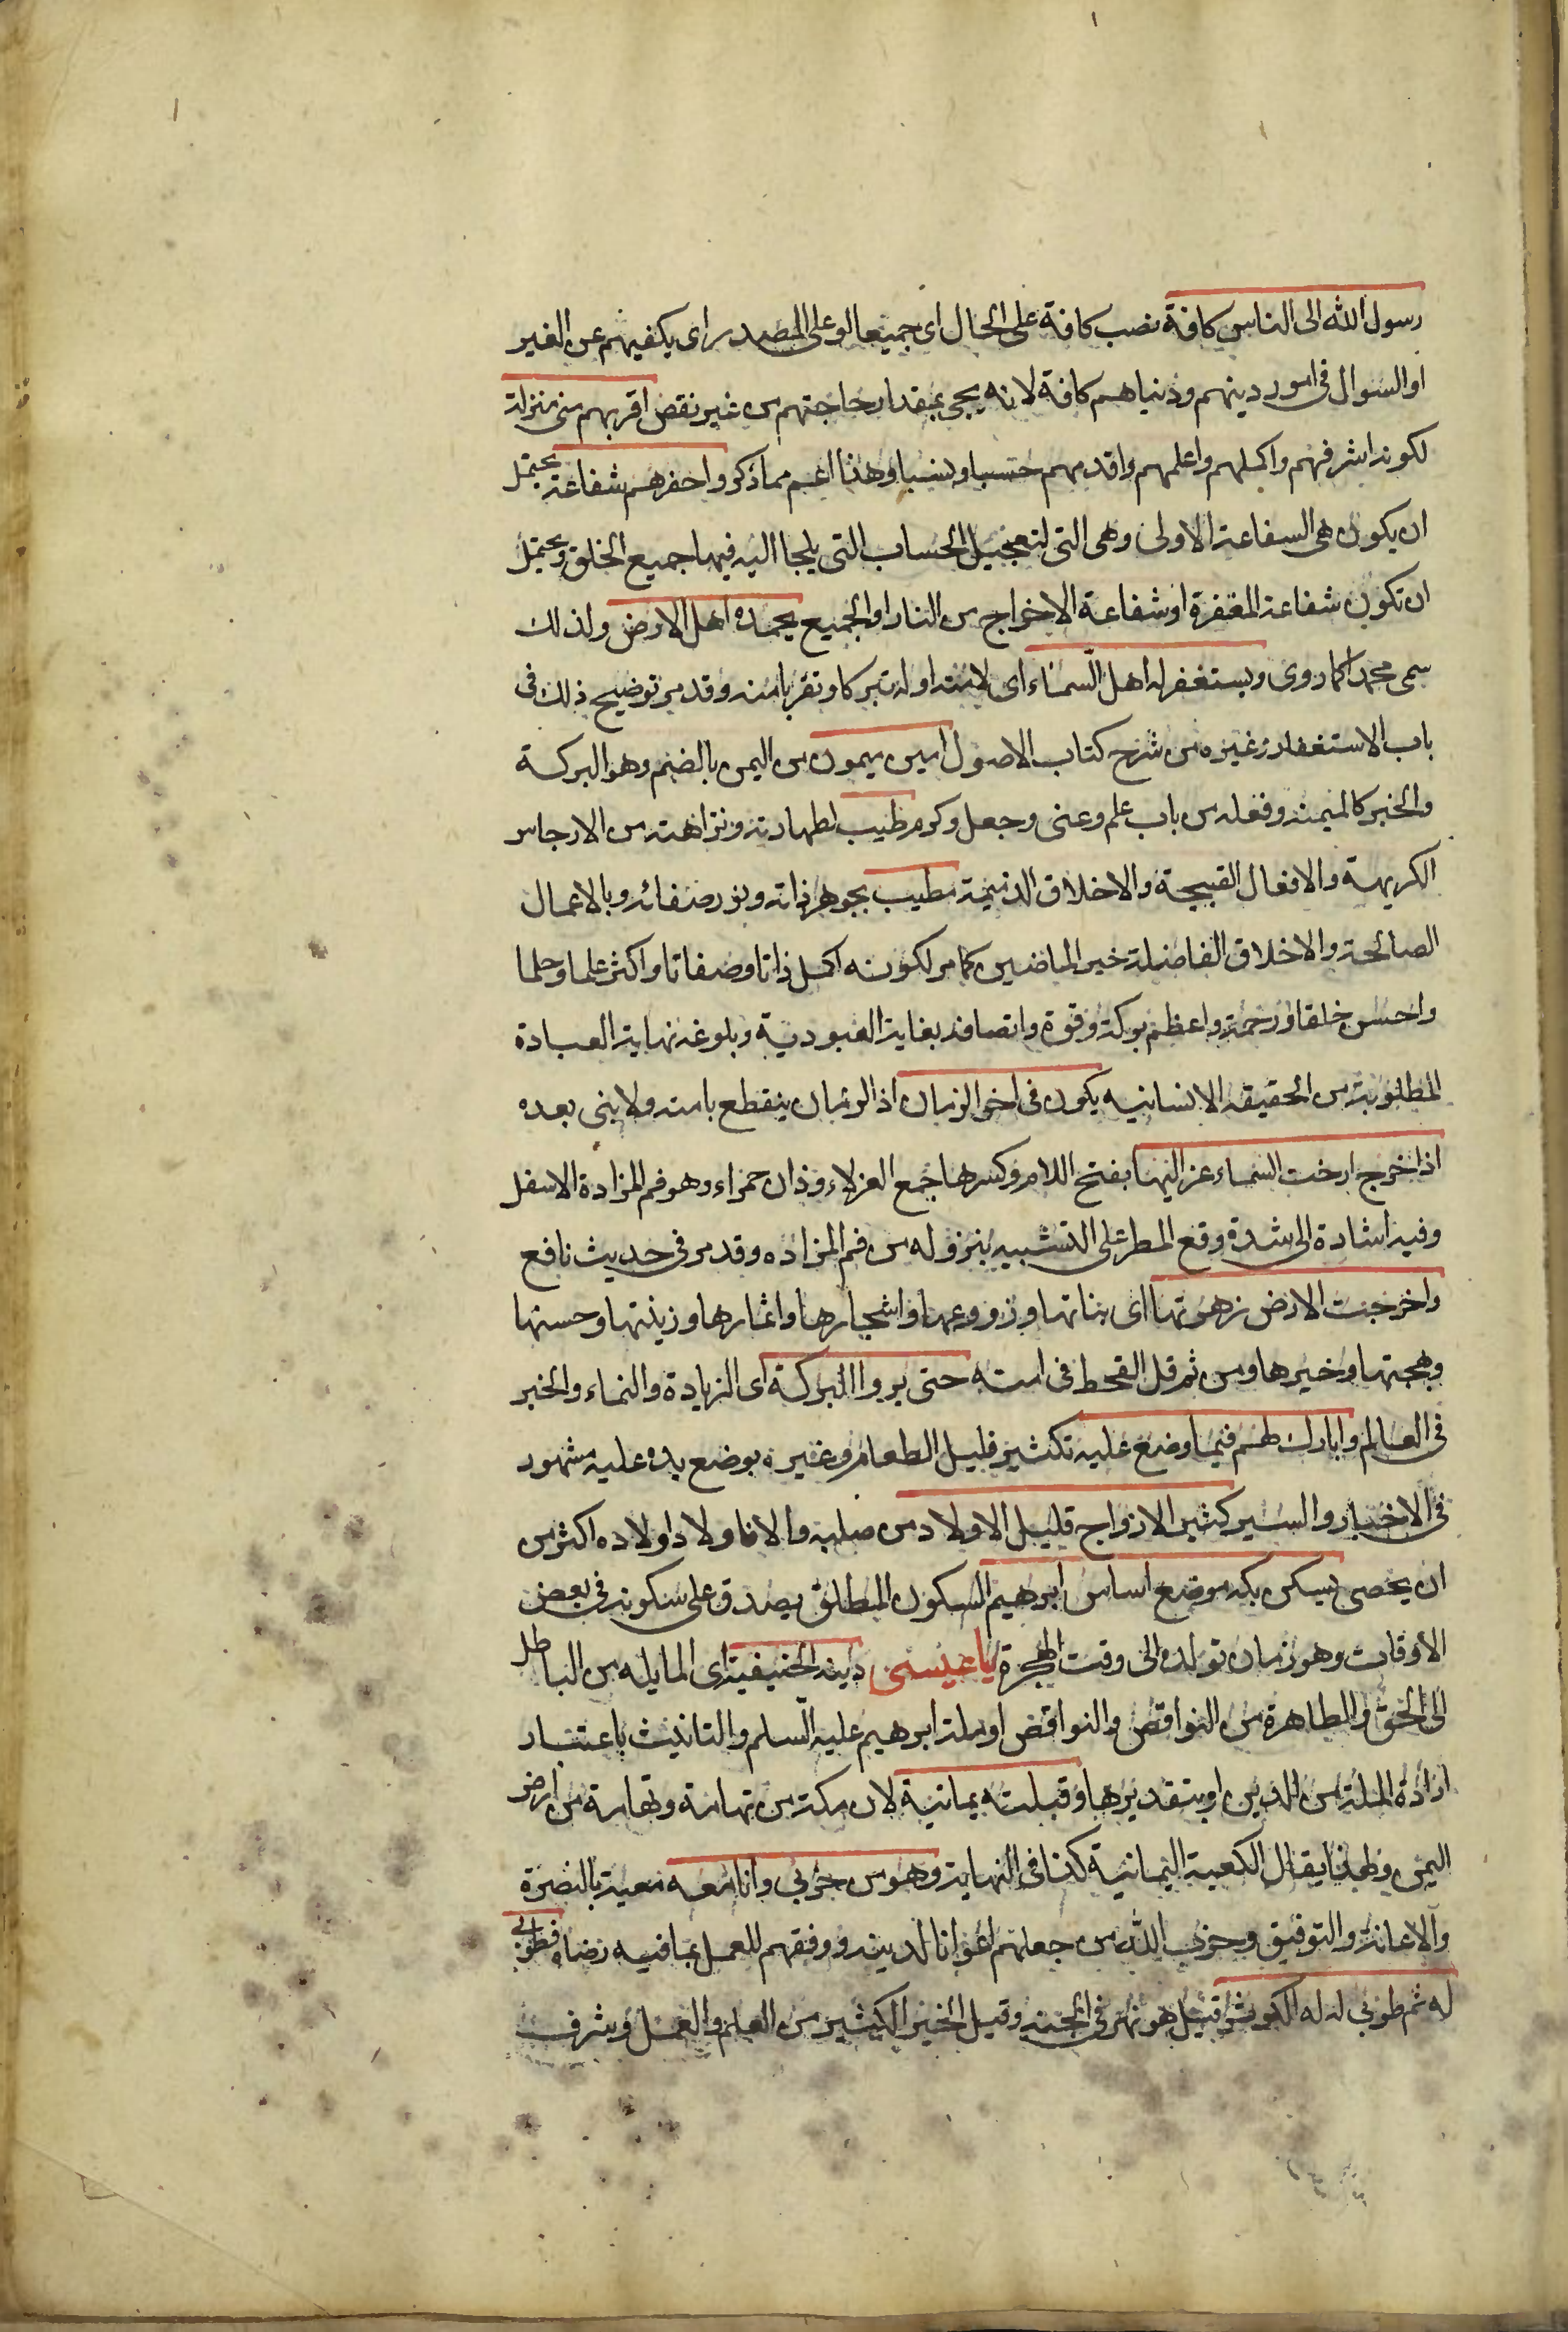 رسول الله الى الناس كافة نصب كافة على الحال اى جميعا او على المصدر اى يكفيهم عن الغير
او السوال فى امور دينهم ودنياهم كافة لانه يجى بمقدار حاجتهم من غير نقص اقربهم منى منزلة
لكونه اشرفهم واكملهم واعلمهم واقدمهم حسبا ونسبا وهذا اعم مما ذكر واحضرهم شفاعة يحتمل
ان يكون هى السفاعة الاولى وهى التى لتعجيل الحساب التى يلجا اليه فيها جميع الخلق ويحتمل
ان تكون شفاعة المغفرة او شفاعة الاخراج من النار او الجميع يحمده اهل الارض ولذلك
سمى محمدا كما روى ويستغفر له اهل السماء اى لامته او له تبركا وتقربا منه وقد مر توضيح ذلك فى
باب الاستغفار وغيره من شرح كتاب الاصول امين ميمون من اليمن بالضم وهو البركة
والخير كالميمنة وفعله من باب علم وعنى وجعل وكرم طيب لطهارته ونزاهته من الارجاس
الكريهة والافعال القبيحة والاخلاق الذميمة مطيب بجوهر ذاته ونور صفاته وبالاعمال
الصالحة والاخلاق الفاضلة خير الماضين كما مر لكونه اكمل ذاتا وصفاتا واكثر علما وحلما
واحسن خلقا ورحمة واعظم بركة وقوة واتصافه بغاية العبودية وبلوغه نهاية العبادة
المطلوبة من الحقيقة الانسانيه يكون فى اخر الزمان اذ الزمان ينقطع بامته ولا نبى بعده
اذا خرج ارخت السماء عزاليها بفتح اللام وكسرها جمع العزلاء وذان حمراء وهو فم المزادة الاسفل
وفيه اشارة الى شدة وقع المطر على التشبيه بنزوله من فم المزاده وقد مر فى حديث نافع
واخرجت الارض زهرتها اى بناتها وزروعها واشجارها واثمارها وزينتها وحسنها
وبهجتها وخيرها ومن ثم قل القحط فى امته حتى يروا البركة اى الزيادة والنماء والخير
فى العالم وابارك لهم فيما وضع عليه تكثير قليل الطعام وغيره بوضع يده عليه مشهور
فى الاخبار والسير كثير الازواج قليل الاولاد من صلبه والا فاولاد اولاده اكثر من
ان يحصى يسكن بكة موضع اساس ابرهيم السكون المطلق يصدق على سكونه فى بعض
الاوقات وهو زمان تولده الى وقت الهجرة يا عيسى دينه الحنيفية اى المايله من الباطل
الى الحق والطاهرة من النواقص والنواقض او ملة ابرهيم عليه السلم والتانيث باعتبار
ارادة الملة من الدين او بتقديرها وقبلته يمانية لان مكة من تهامة وتهامة من ارض
اليمن ولهذا يقال الكعبة اليمانية كذا فى النهاية وهو من حزبى وانا معه معية بالنصرة
والاعانة والتوفيق وحزب الله من جعلهم اعوانا لدينه ووفقهم للعمل بما فيه رضاه فطوبى
له ثم طوبى له له الكوثر قيل هو نهر فى الجنة وقيل الخير الكثير من العلم والعمل وشرف